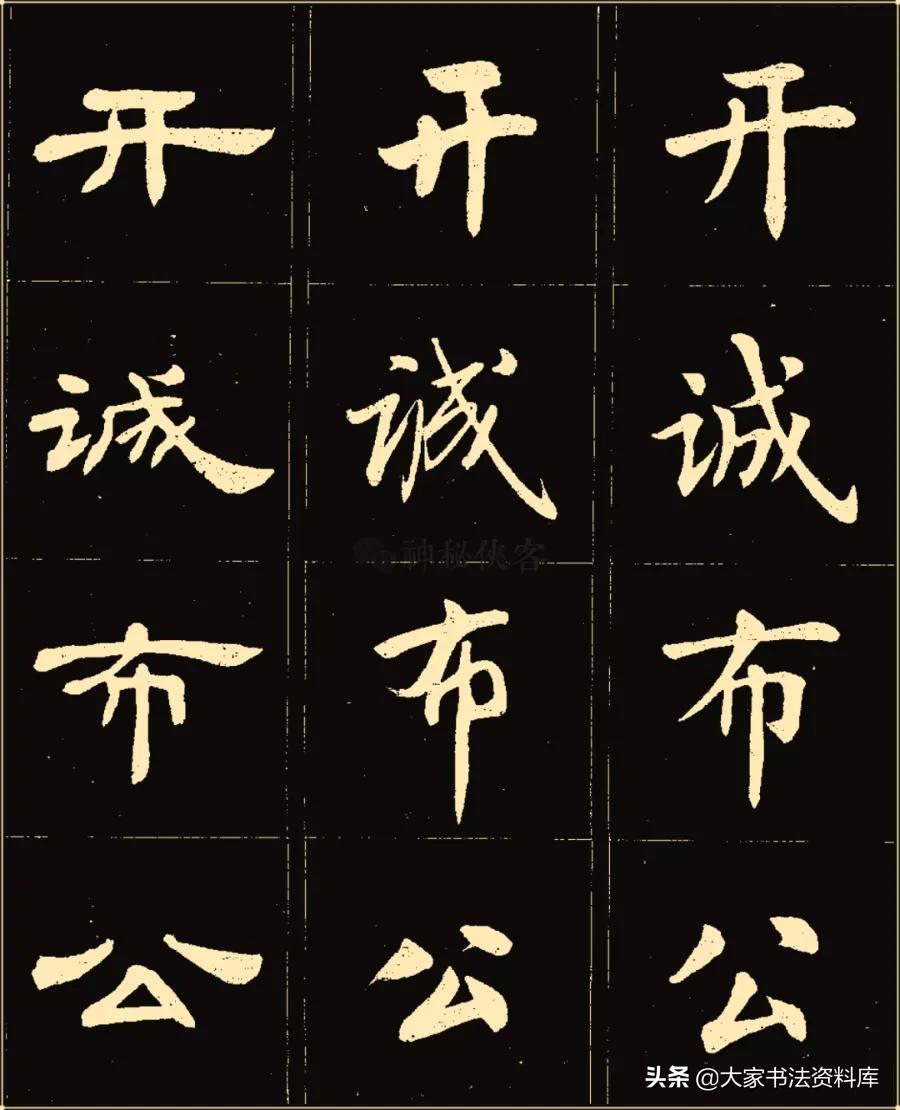 开 开 开
诚 诚 诚
布 布 布
公 公 公
神秘侠客
头条 @大家书法资料库